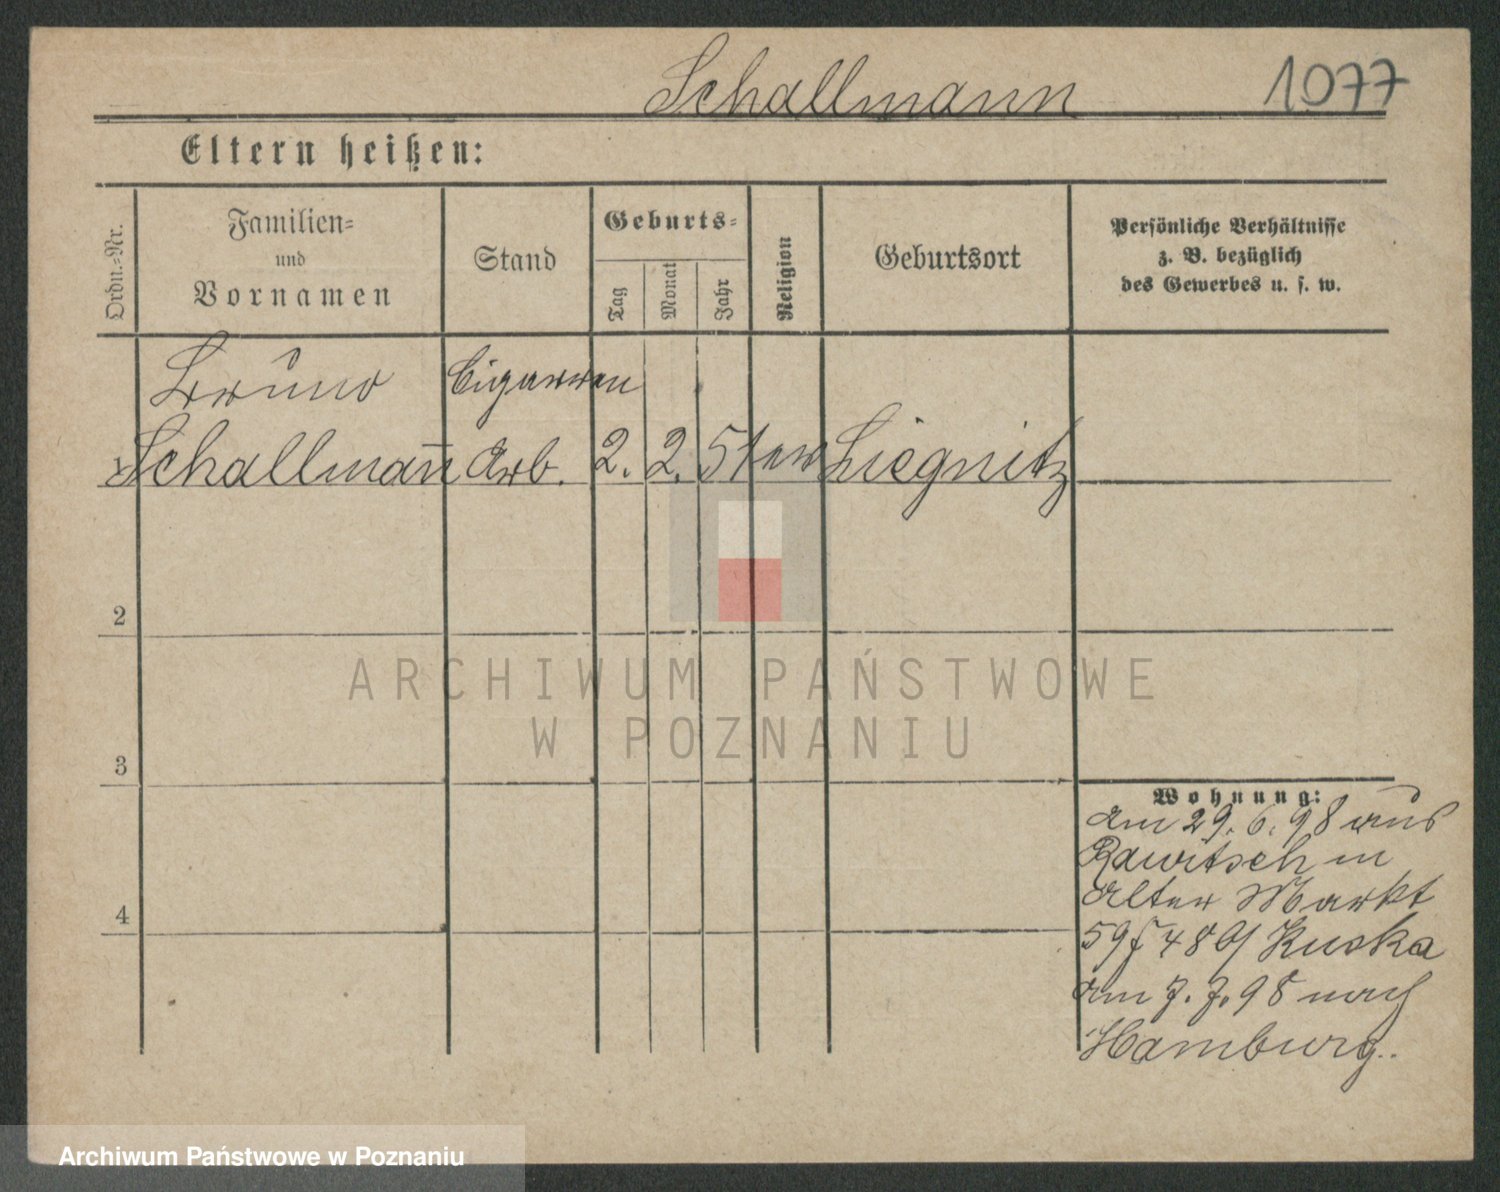 Schallmann 1077
Eltern heißen:
Ordn.-Nr.
Familien-
und
Vornamen
Stand
Geburts-
Tag
Monat
Jahr
Religion
Geburtsort
Persönliche Verhältnisse
z. B. bezüglich
des Gewerbes u. s. w.
Bruno Cigarren
1 Schallmann Arb. 2. 2. 51 ev Liegnitz
2
3
4
Wohnung:
am 29. 6. 98 aus
Rawitsch in
Alter Markt
59 48 b/ Kuska
am 7. 7. 98 nach
Hamburg.
ARCHIWUM PAŃSTWOWE
W POZNANIU
Archiwum Państwowe w Poznaniu